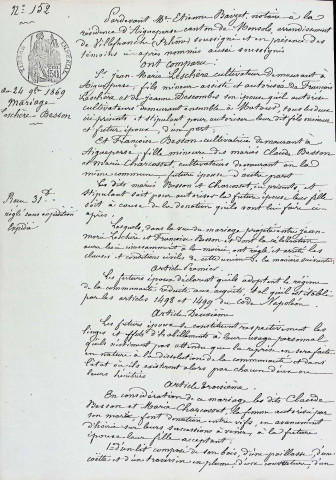 N° 152
du 24 9bre 1869
Mariage
Leschère - Besson
Reçu 31f
réglé sans expédition
expédié
Pardevant Me Etienne Bauzet, notaire à la
résidence d'Aigueperse canton de Monsols, arrondissement
de Villefranche (Rhône) soussigné et en présence des
témoins ci-après nommés aussi soussignés
Ont comparu:
Sr Jean Marie Leschère cultivateur demeurant à
Aigueperse, fils mineur assisté et autorisé de François
Leschère et de Jeanne Descombes son épouse qu'il autorise
cultivateurs demeurant ensemble à Matour, tous les deux
ici présents et stipulant pour autoriser leur dit fils mineur,
futur époux, d'une part.
Et Françoise Besson cultivatrice demeurant à
Aigueperse, fille mineure des mariés Claude Besson
et Marie Charcosset, cultivateurs demeurant en la
même commune, future épouse d'autre part
Les dits mariés Besson et Charcosset, ici présents, et
stipulant soit pour autoriser la future épouse leur fille
soit à cause de la donation qu'ils vont lui faire ci
après.
Lesquels, dans la vue du mariage projeté entre Jean
Marie Leschère et Françoise Besson, et dont la célébration
aura lieu incessamment à la mairie, ont réglé et arrêté les
clauses et conditions civiles de cette union de la manière suivante:
Article Premier
Les futurs époux déclarent qu'ils adoptent le régime
de la communauté réduite aux acquêts, tel qu'il est établi
par les articles 1498 et 1499 du Code Napoléon.
Article Deuxième
Les futurs époux se constituent respectivement les
linges et effets d'habillements à leur usage personnel
qu'ils n'estiment pas attendu que la reprise en sera faite
en nature à la dissolution de la communauté et dans
l'état où ils existeront alors par chacun d'eux ou
leurs héritiers
Article troisième
En considération de ce mariage les dits Claude
Besson et Marie Charcosset, la femme autorisée par
son mari, font donation entre vifs, en avancement
d'hoirie sur leurs successions à venir, à la future
épouse leur fille acceptant.
1° d'un lit composé de son bois, d'une paillasse, d'un
coëtte et d'un traversin en plume, d'une couverture, d'un